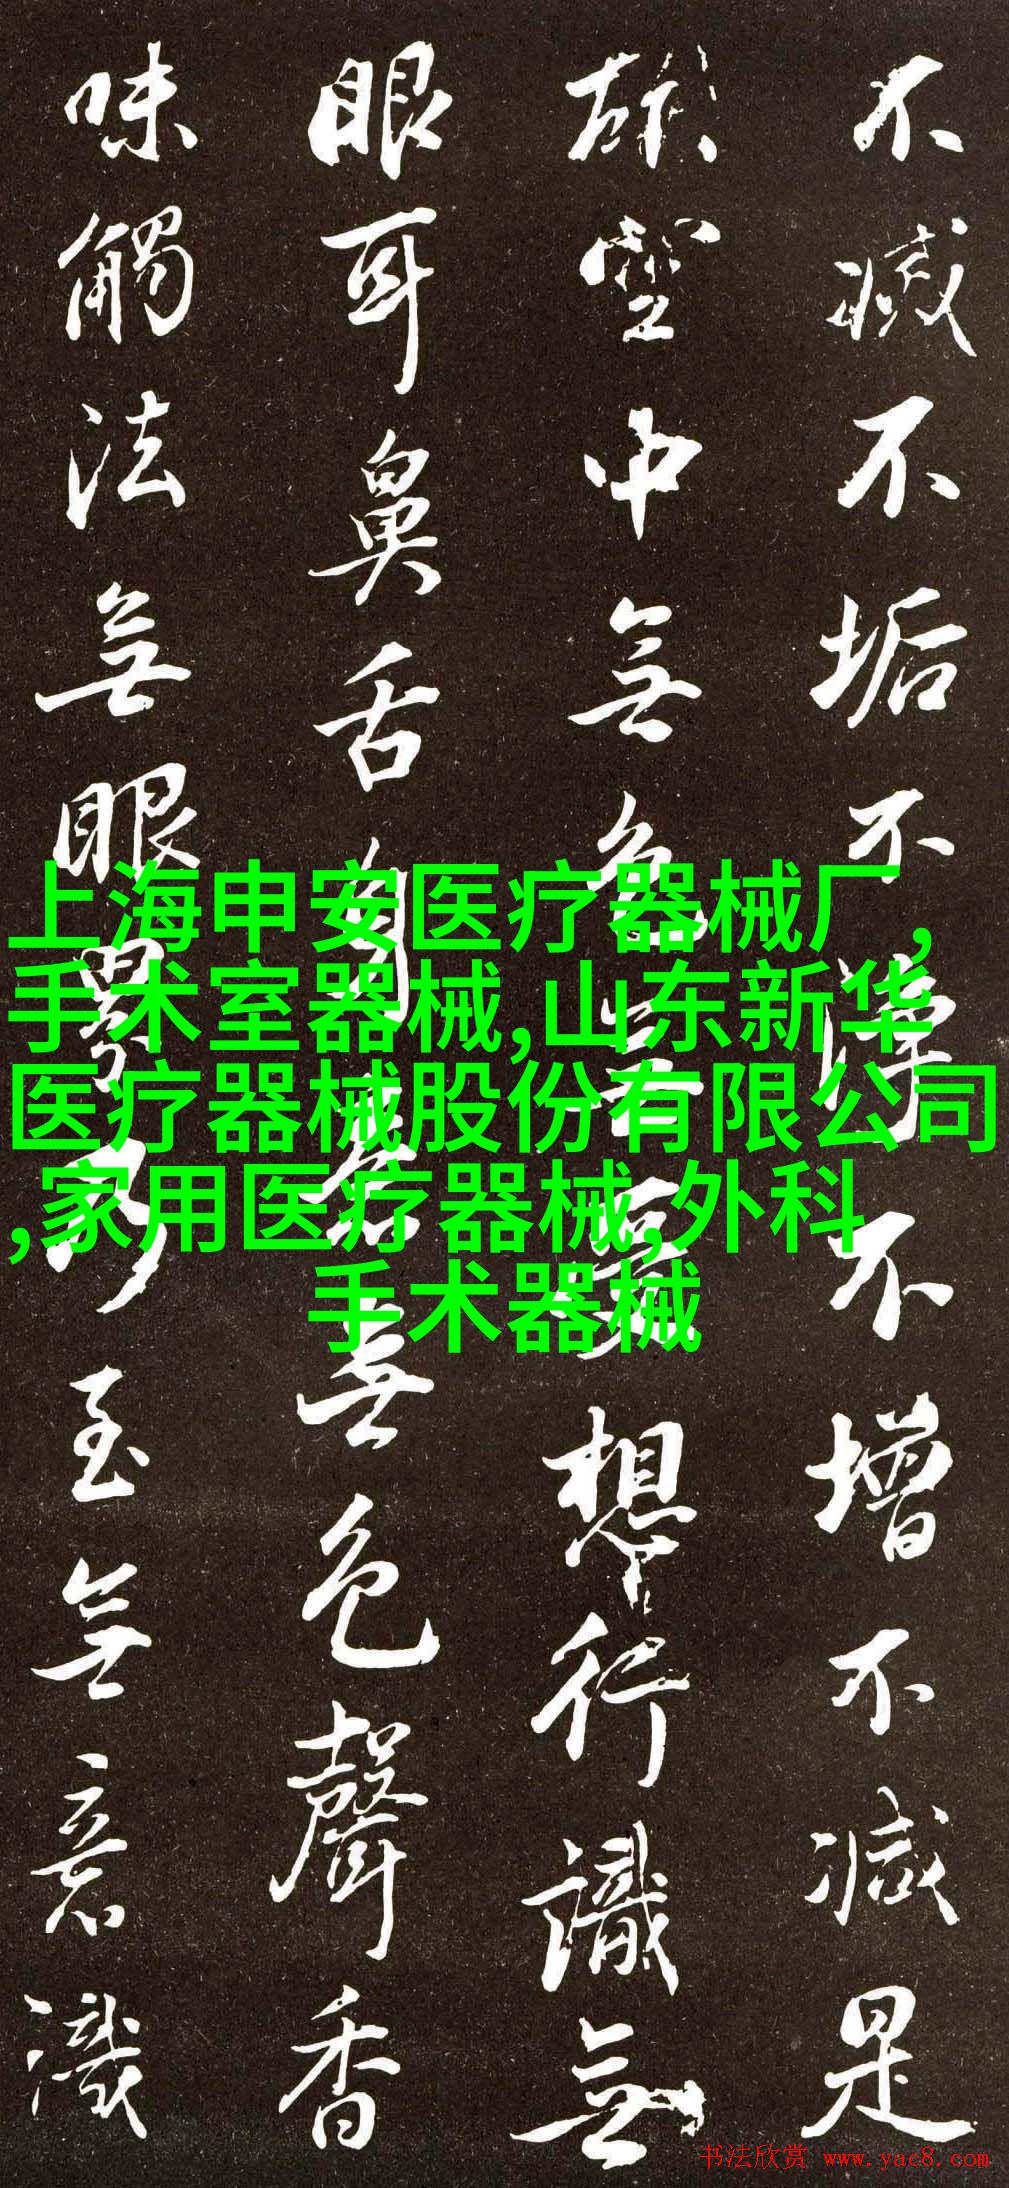 不滅不垢不淨不增不減是
故空中無色無受想行識無
眼耳鼻舌身意無色聲香
味觸法無眼界乃至無意識
上海申安医疗器械厂,
手术室器械,山东新华
医疗器械股份有限公司
,家用医疗器械,外科
手术器械
书法欣赏 www.yac8.com